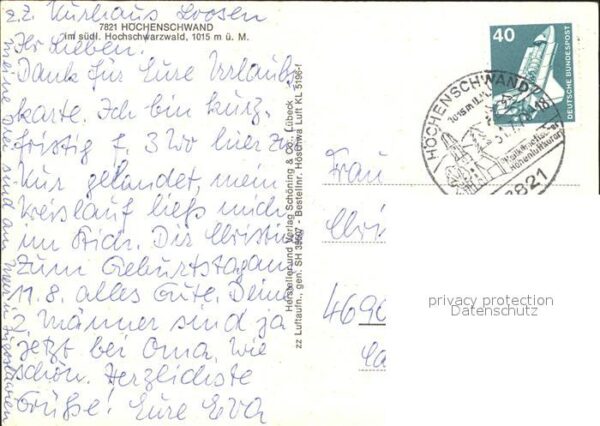 z.Z. Kurhaus Loosen
7821 HÖCHENSCHWAND
im südl. Hochschwarzwald, 1015 m ü. M.
Ihr Lieben!
Dank für Eure Urlaubs
karte. Ich bin kurz
fristig f. 3 Wo hier zu
Kur gelandet, mein
Kreislauf ließ mich
im Stich. Dir Christin
zum Geburtstag am
11.8. alles Gute. Deine
2 Männer sind ja
jetzt bei Oma. Wie
schön. Herzlichste
Grüße! Eure Eva
meine drei sind am Meer in Jugoslawien
Hersteller und Verlag Schöning & Co., Lübeck
zz Luftaufn., gen. SH 39607 - Bestellnr. Höschwa Luft KL 5196-1
40
DEUTSCHE BUNDESPOST
HÖCHENSCHWAND
Höhenluftkurort
7821
Frau
Chri
4690
privacy protection
Datenschutz